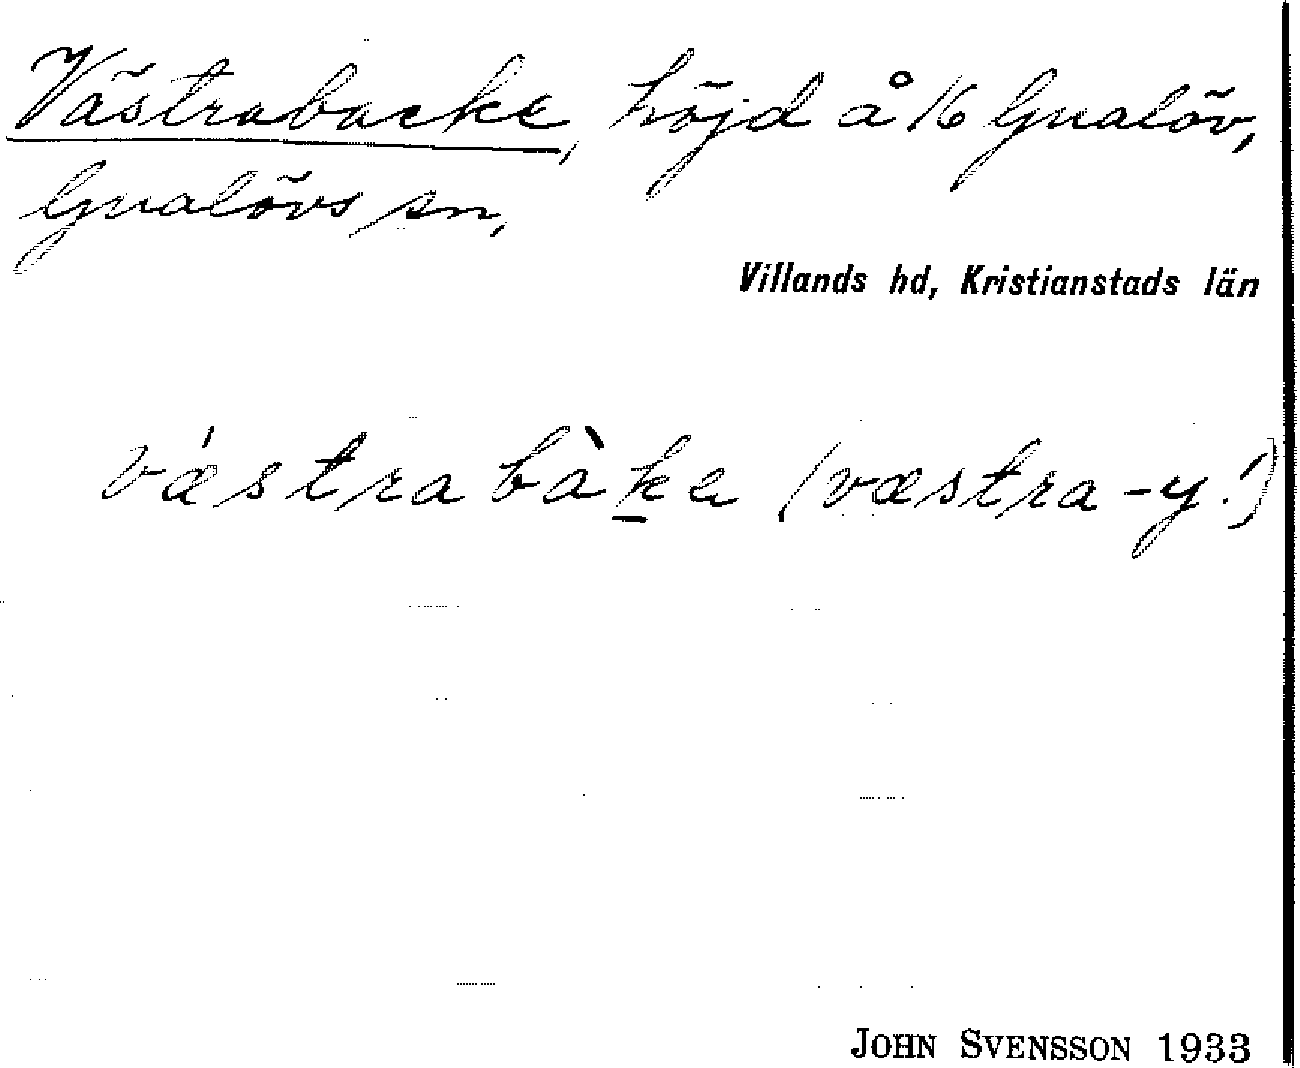 Västrabacke, höjd å 16 Gualöv,
Gualövs sn,
Villands hd, Kristianstads län
vǽstrabàk̲a (væstra-y!)
JOHN SVENSSON 1933